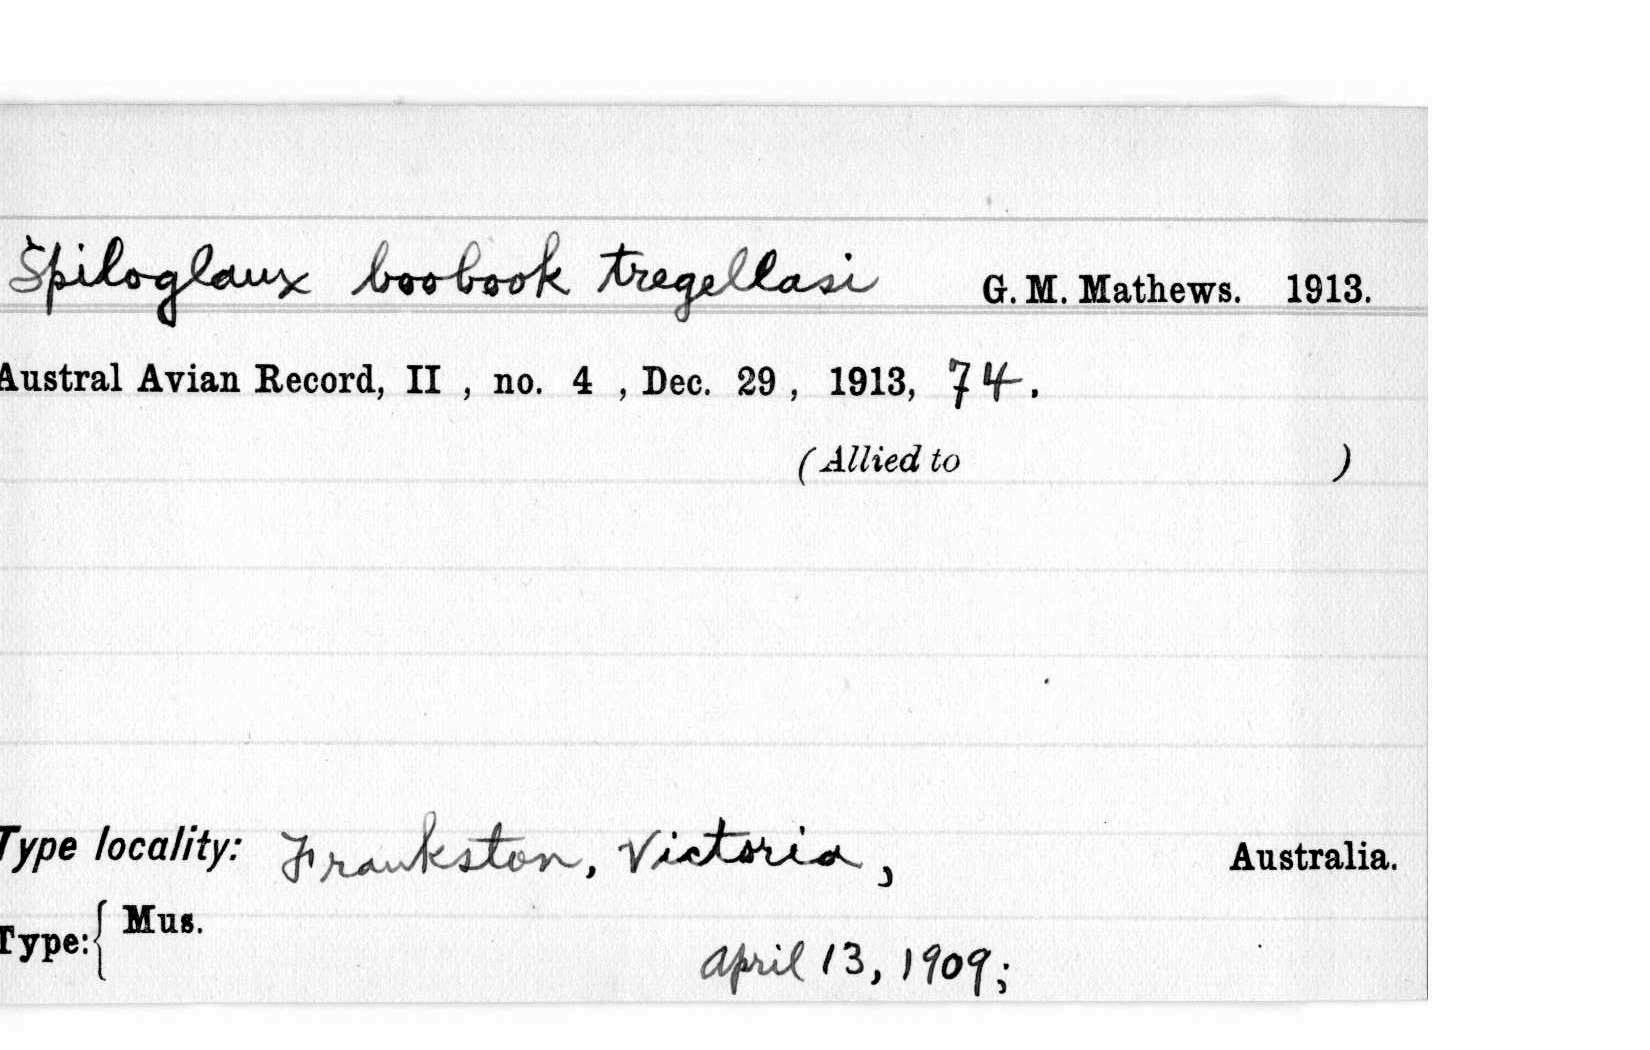 Spiloglaux boobook tregellasi G. M. Mathews. 1913.
Austral Avian Record, II , no. 4 , Dec. 29 , 1913, 74.
(Allied to )
Type locality: Frankston, Victoria, Australia.
Type: { Mus.
April 13, 1909;